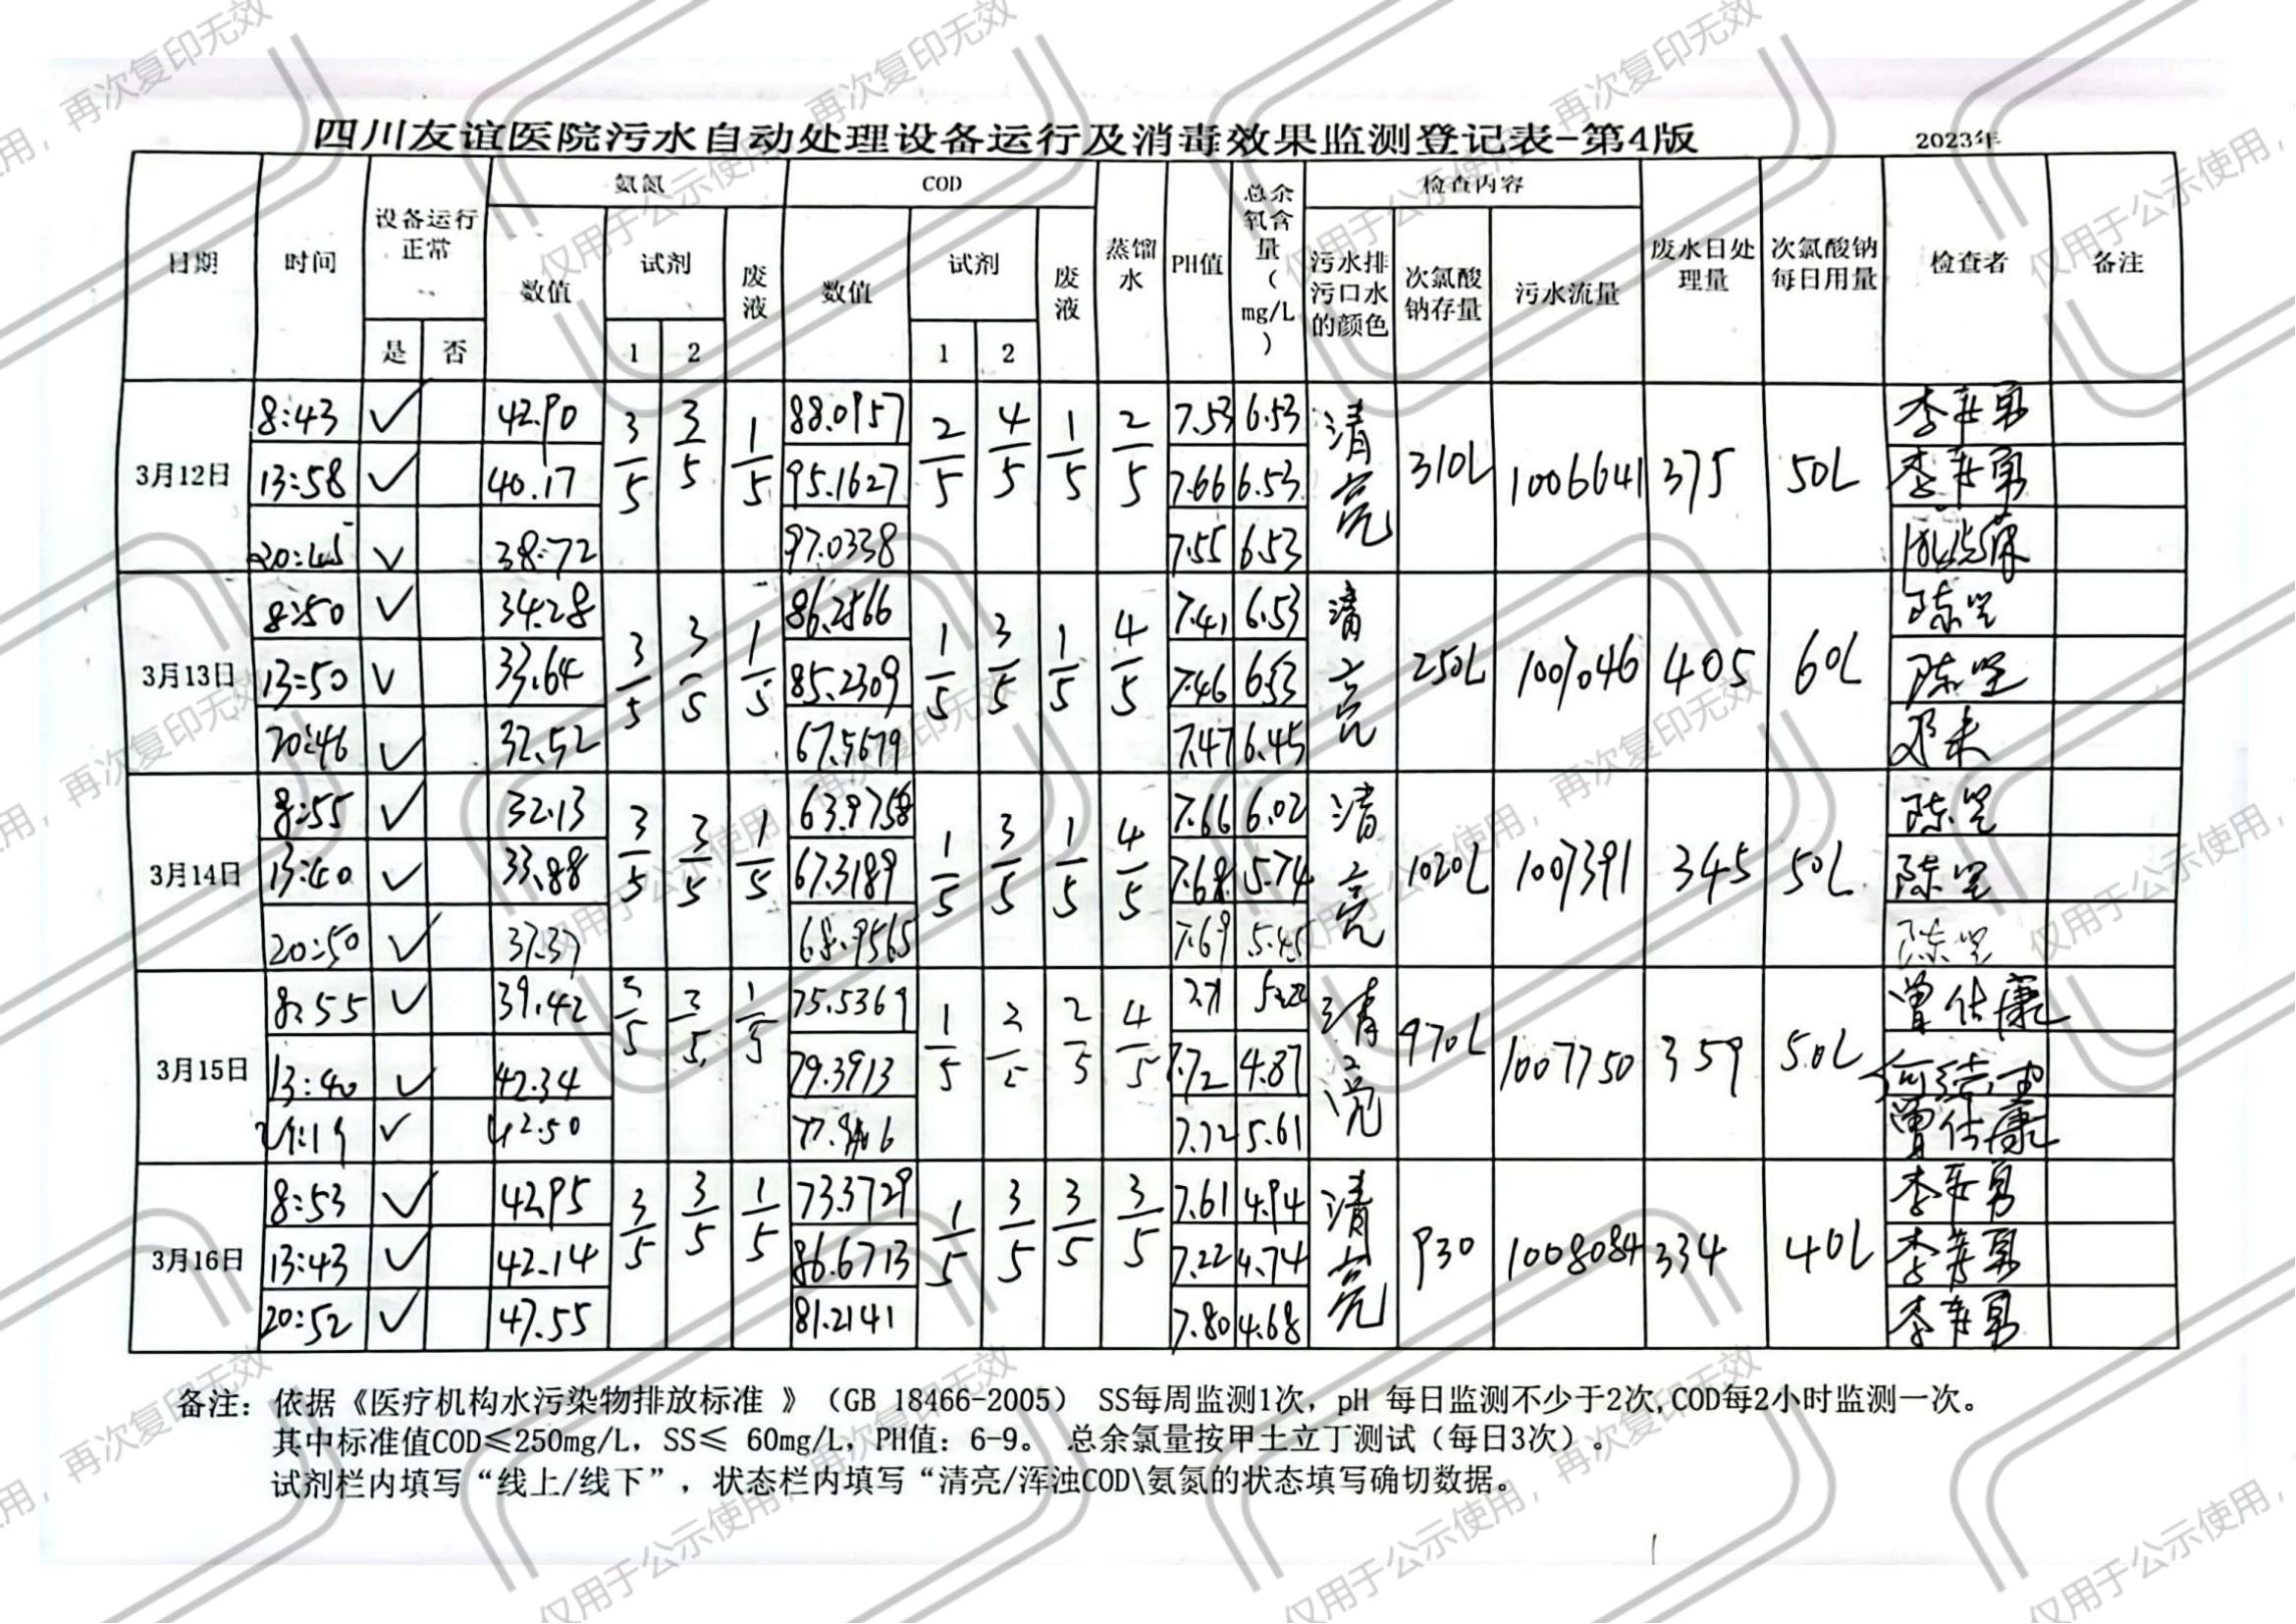 四川友谊医院污水自动处理设备运行及消毒效果监测登记表-第4版 2023年
日期 时间 设备运行正常 是 否 氨氮 数值 试剂 1 2 废液 COD 数值 试剂 1 2 废液 蒸馏水 PH值 总余氧含量(mg/L) 检查内容 污水排污口水的颜色 次氯酸钠存量 污水流量 废水日处理量 次氯酸钠每日用量 检查者 备注
3月12日 3/5 3/5 1/5 2/5 4/5 1/5 2/5 清亮 310L 1006641 375 50L
8:43 ✓ 42.90 88.0957 7.53 6.53
13:58 ✓ 40.17 95.1627 7.66 6.53
20:45 ✓ 38.72 97.0338 7.55 6.53
3月13日 3/5 3/5 1/5 1/5 3/5 1/5 4/5 清亮 250L 1007046 405 60L
8:50 ✓ 34.28 86.2566 7.41 6.53
13:50 ✓ 33.64 85.2309 7.46 6.53
20:46 ✓ 32.52 67.5679 7.47 6.45
3月14日 3/5 3/5 1/5 1/5 3/5 1/5 4/5 清亮 1020L 1007391 345 50L
8:55 ✓ 32.13 63.9758 7.66 6.02
13:40 ✓ 33.88 67.3189 7.68 5.74
20:50 ✓ 37.37 68.9565 7.69 5.45
3月15日 3/5 3/5 1/5 1/5 2/5 4/5 清亮 970L 1007750 359 50L
8:55 ✓ 39.42 75.5369 曾仕康
13:40 ✓ 42.34 79.3913 7.72 4.87
✓ 42.50 7.72 5.61 曾仕康
3月16日 3/5 3/5 1/5 1/5 3/5 3/5 3/5 清亮 930 1008084 334 40L
8:53 ✓ 42.95 73.3729 7.61 4.94
13:43 ✓ 42.14 86.6713 7.22 4.74
20:52 ✓ 47.55 81.2141 7.80 4.68
备注：依据《医疗机构水污染物排放标准 》（GB 18466-2005） SS每周监测1次，pH 每日监测不少于2次,COD每2小时监测一次。
其中标准值COD≤250mg/L，SS≤ 60mg/L，PH值：6-9。 总余氯量按甲土立丁测试（每日3次）。
试剂栏内填写“线上/线下”，状态栏内填写“清亮/浑浊COD\氨氮的状态填写确切数据。
仅用于公示使用，再次复印无效